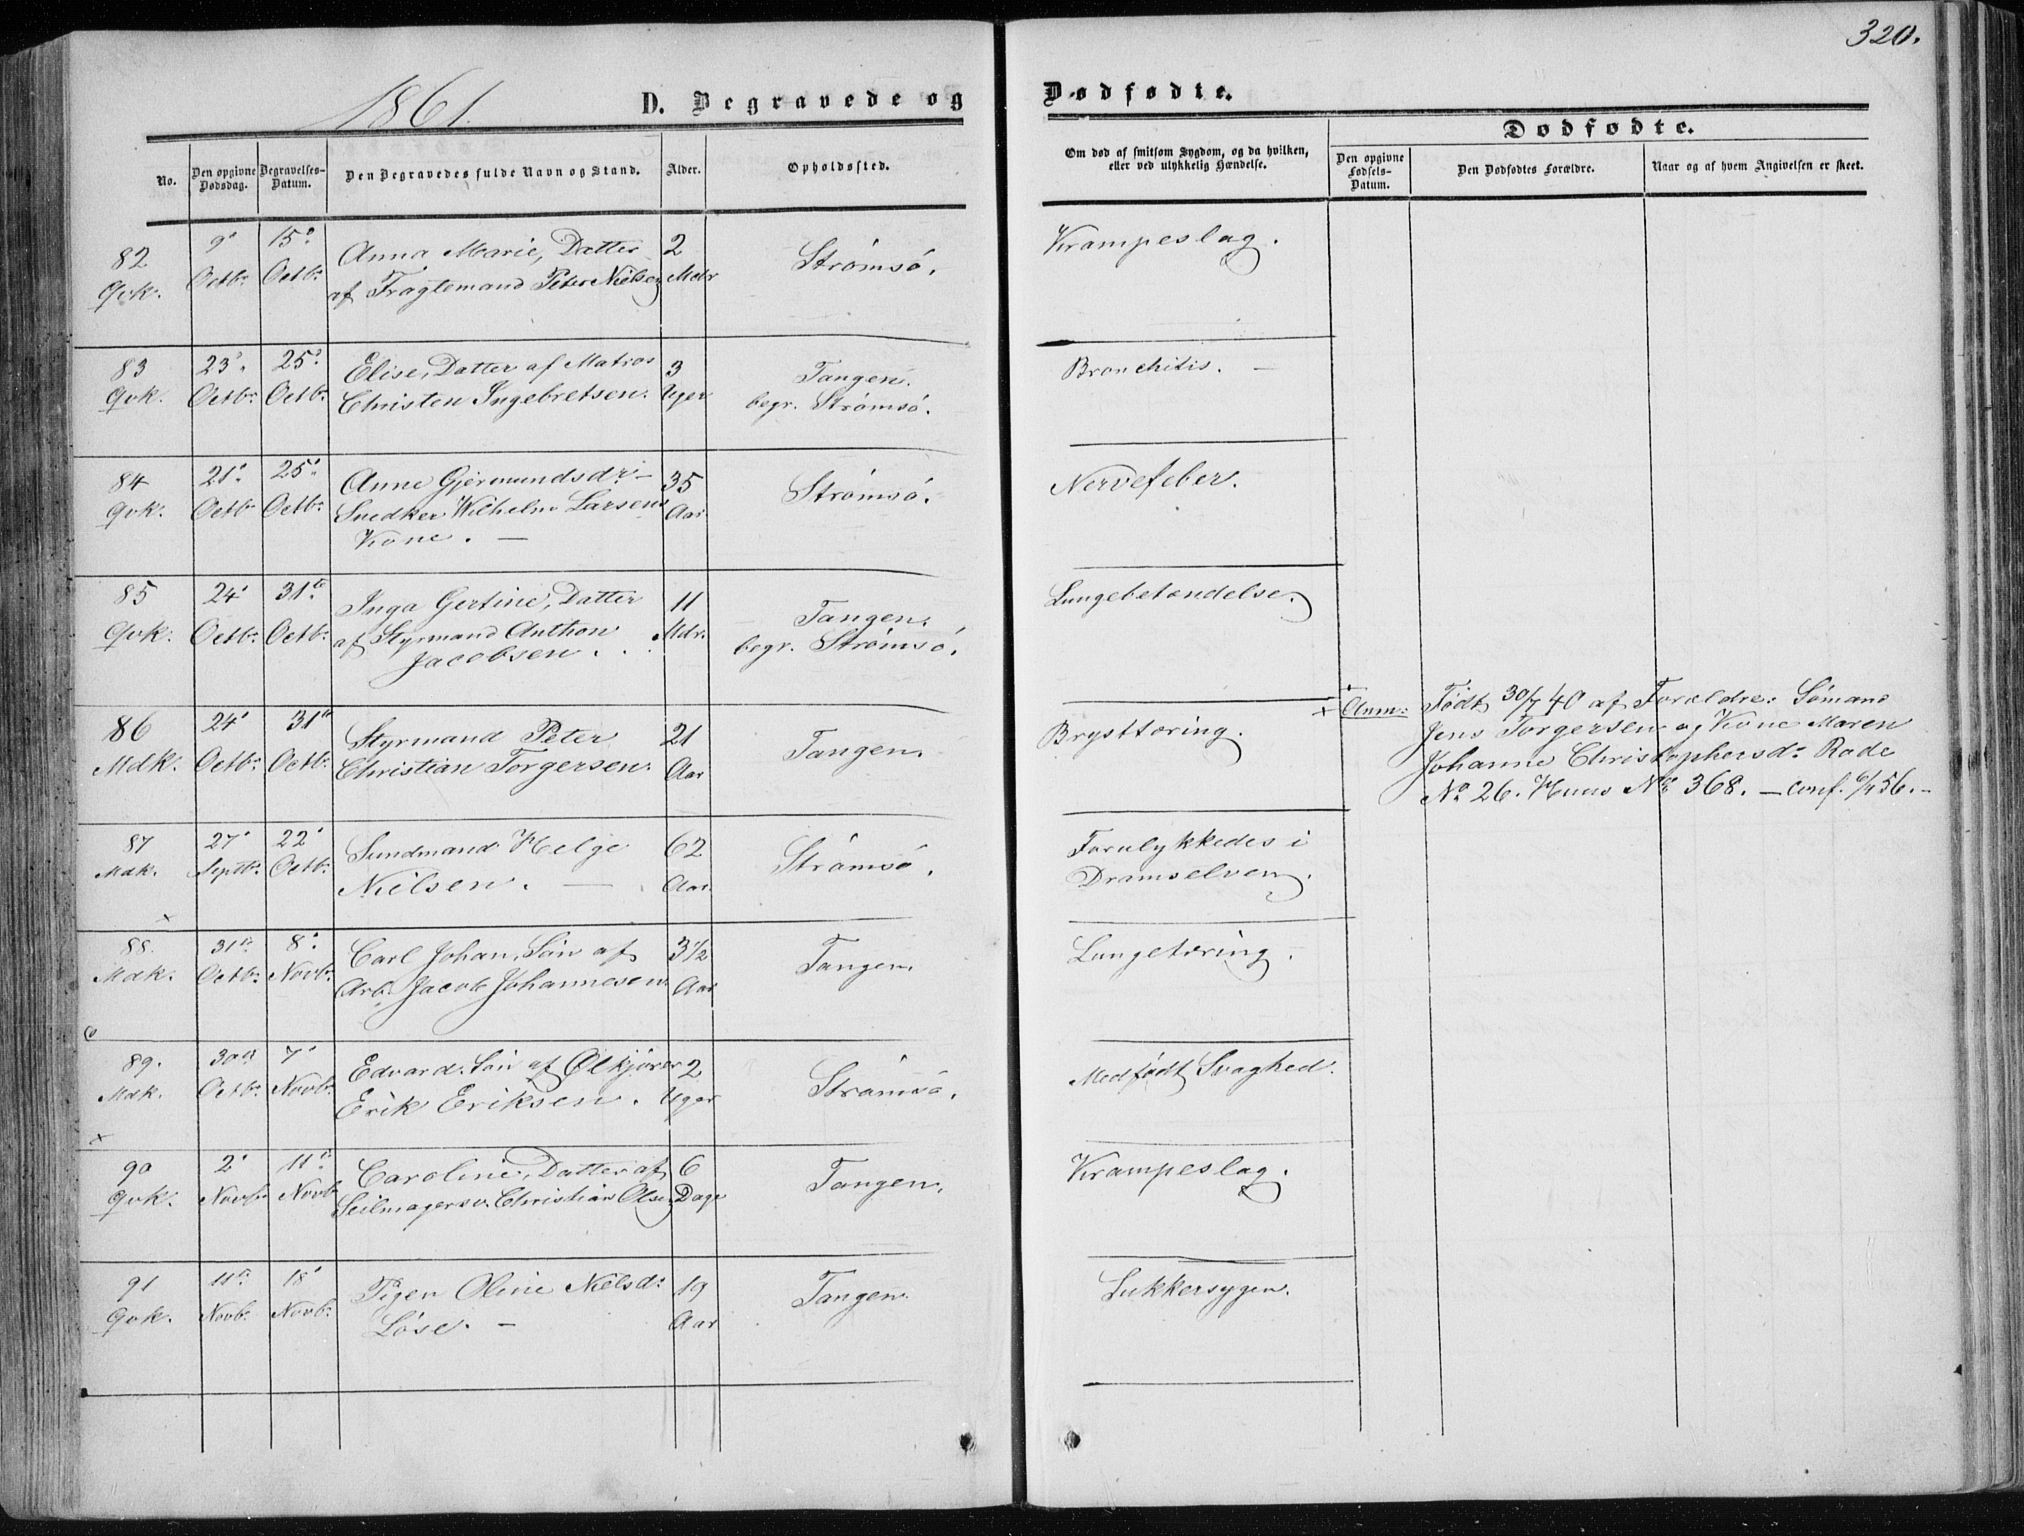 320.
1861.
D. Begravede og Dødfødte.
Dødfødte.
No.
Den opgivne Dødsdag.
Begravelses-Datum.
Den Begravedes fulde Navn og Stand.
Alder.
Opholdssted.
Om død af smitsom Sygdom, og da hvilken, eller ved ulykkelig Hændelse.
Den opgivne Fødsels-Datum.
Den Dødfødtes Forældre.
Naar og af hvem Angivelsen er skeet.
82 9' 15' Anna Marie, Datter 2 Strømsø. Krampeslag.
Qvk. Octbr. Octbr. af Peter Nielsen Mdr
83 23' 25' Elise, Datter af Matros 3 Tangen. Bronchitis. –
Qvk. Octbr. Octbr. Christen Ingebretsen. Uger begr. Strømsø.
84 21' 25' Anne Gjermundsdr. – 35 Strømsø. Nervefeber.
Qvk. Octbr. Octbr. Snedker Wilhelm Larsens Aar
Kone. –
85 24' 31te Inga Gertine, Datter 11 Tangen. Lungebetændelse.
Qvk. Octbr. Octbr. af Styrmand Anthon Mdr. begr. Strømsø.
Jacobsen.
86 24' 31te Styrmand Peter 21 Tangen. Brysttæring.
Mdk. Octbr. Octbr. Christian Torgersen. Aar
+ Anm: Født 30/7 40 af Forældre: Sømand
Jens Torgersen og Kone Maren
Johanne Christophersdr. Rode
No 26. Huus No 368. – conf. 56. –
87 27' 22' Sundmand Helge 62 Strømsø. Forulykkedes i
Mdk. Septbr. Octbr. Nielsen. – Aar. Dramselven.
x
88. 31te 8' Carl Johan, Søn af 3 1/2 Tangen. Lungetæring.
Mdk. Octbr. Novbr. Arb. Jacob Johannesen. Aar
89. 30te 7' Edvard. Søn af Ølkjører 2 Strømsø. Medfødt Svaghed.
Mdk. Octbr. Novbr. Erik Eriksen. Uger
x
90 2' 11te Caroline, Datter af 6 Tangen. Krampeslag.
Qvk. Novbr. Novbr. Seilmagersv. Christian Olsen Dage
91 11te 18' Pigen Oline Nielsdr. 19 Tangen. Sukkersygen.
Qvk. Novbr. Novbr. Løse. – Aar